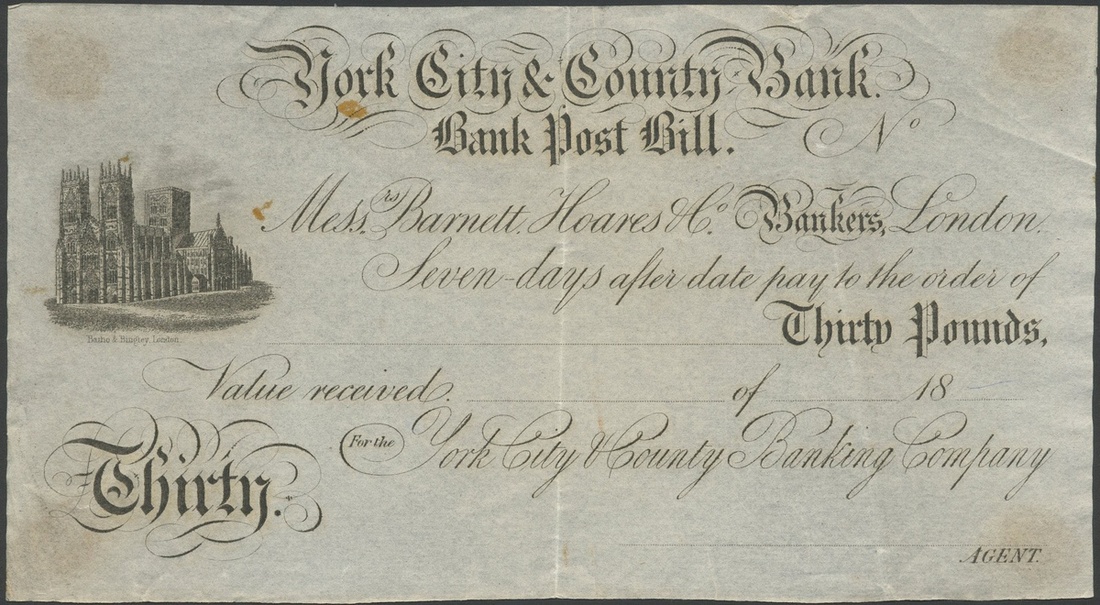 York City & County Bank.
Bank Post Bill. No
Messrs. Barnett, Hoares & Co. Bankers, London.
Seven-days after date pay to the order of
Thirty Pounds,
Value received. of 18
For the York City & County Banking Company
Thirty.
AGENT.